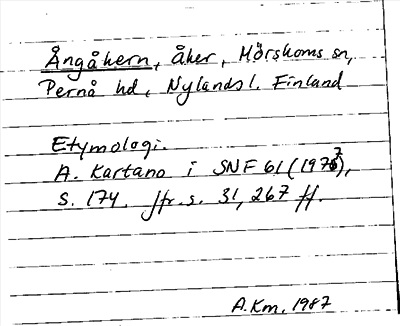 Ångåkern, åker, Mörskoms sn,
Pernå hd, Nylands l. Finland
Etymologi.
A. Kartano i SNF 61 (1977),
s. 174. Jfr. s. 31, 267 ff.
A.Km. 1987